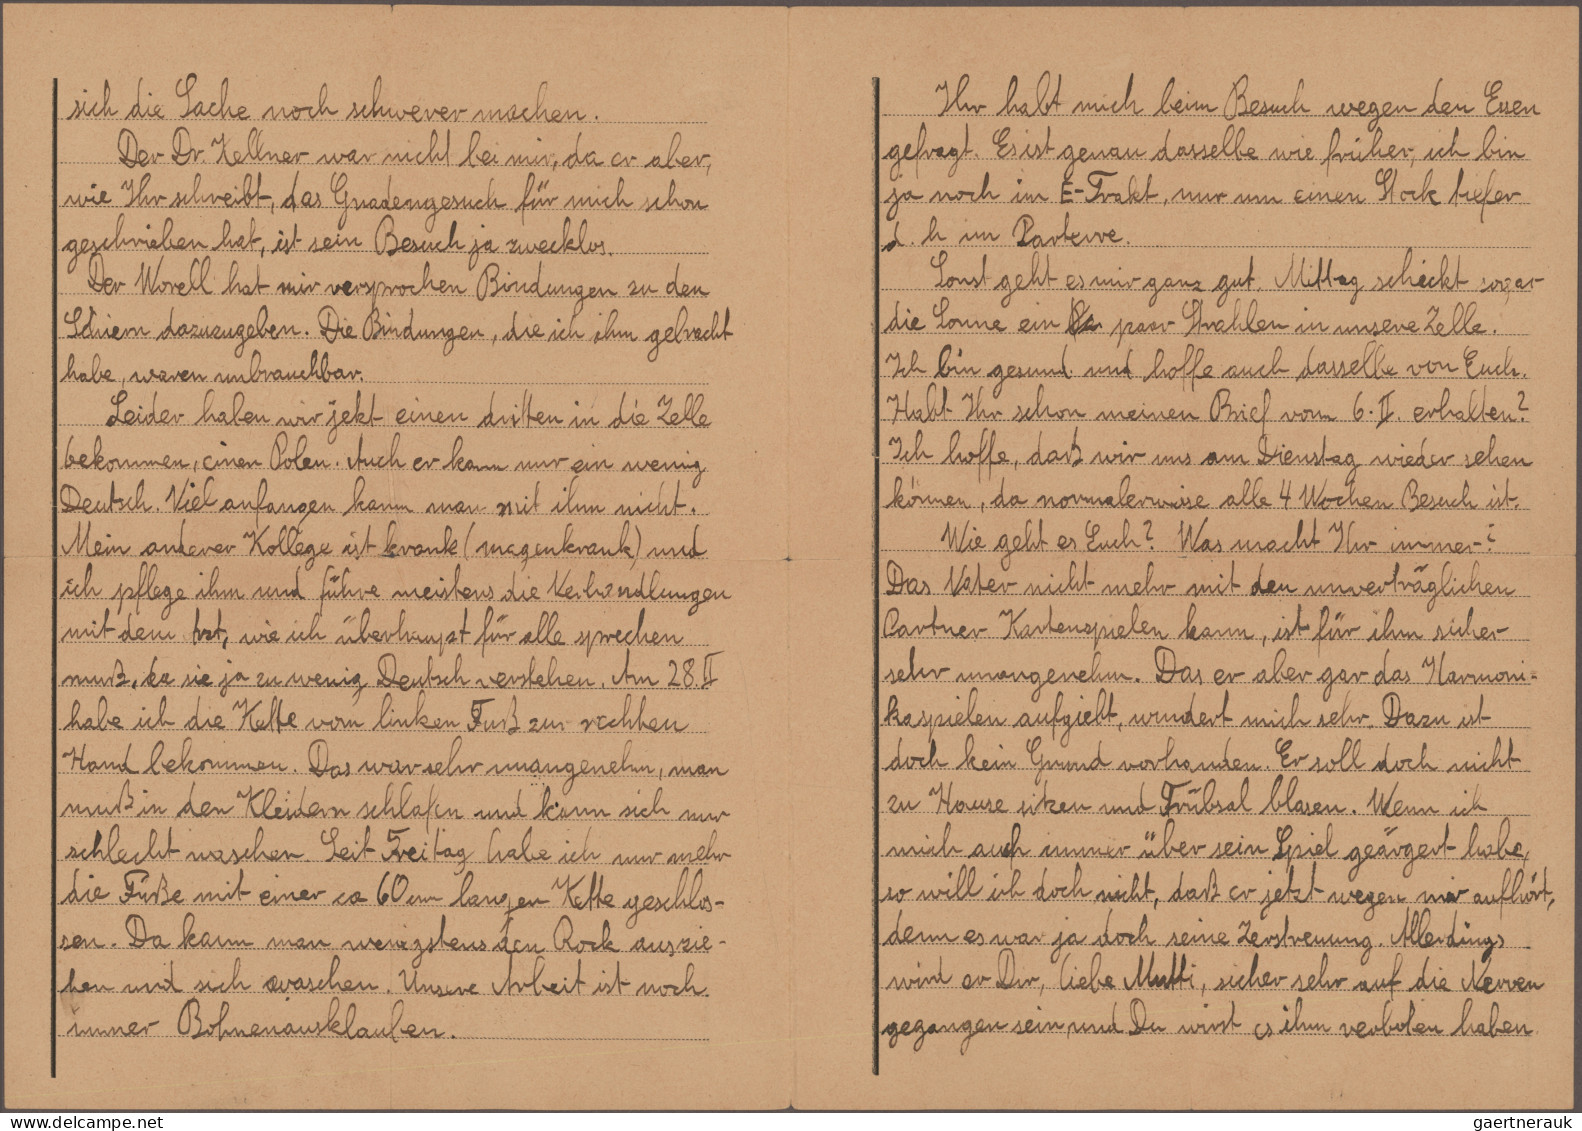 sich die Sache noch schwerer machen.
Der Dr. Kellner war nicht bei mir, da er aber,
wie Ihr schreibt, das Gnadengesuch für mich schon
geschrieben hat, ist sein Besuch ja zwecklos.
Der Worell hat mir versprochen Bindungen zu den
Schiern dazuzugeben. Die Bindungen, die ich ihm gebracht
habe, waren unbrauchbar.
Leider haben wir jetzt einen dritten in die Zelle
bekommen, einen Polen. Auch er kann nur ein wenig
Deutsch. Viel anfangen kann man mit ihm nicht.
Mein anderer Kollege ist krank (magenkrank) und
ich pflege ihm und führe meistens die Verhandlungen
mit dem Arzt, wie ich überhaupt für alle sprechen
muß, da sie ja zu wenig Deutsch verstehen. Am 28.II
habe ich die Kette vom linken Fuß zur rechten
Hand bekommen. Das war sehr unangenehm, man
muß in den Kleidern schlafen und kann sich nur
schlecht waschen. Seit Freitag habe ich nur mehr
die Füße mit einer ca 60 cm langen Kette geschlos-
sen. Da kann man wenigstens den Rock auszie-
hen und sich waschen. Unsere Arbeit ist noch
immer Bohnenausklauben.
Ihr habt mich beim Besuch wegen den Essen
gefragt. Es ist genau dasselbe wie früher, ich bin
ja noch im E-Trakt, nur um einen Stock tiefer
d. h im Parterre.
Sonst geht es mir ganz gut. Mittag schickt sogar
die Sonne ein paar Strahlen in unsere Zelle.
Ich bin gesund und hoffe auch dasselbe von Euch.
Habt Ihr schon meinen Brief vom 6.II. erhalten?
Ich hoffe, daß wir uns am Dienstag wieder sehen
können, da normalerweise alle 4 Wochen Besuch ist.
Wie geht es Euch? Was macht Ihr immer?
Das Vater nicht mehr mit den unverträglichen
Partner Kartenspielen kann, ist für ihm sicher
sehr unangenehm. Das er aber gar das Harmoni-
kaspielen aufgiebt, wundert mich sehr. Dazu ist
doch kein Grund vorhanden. Er soll doch nicht
zu Hause sitzen und Trübsal blasen. Wenn ich
mich auch immer über sein Spiel geärgert habe,
so will ich doch nicht, daß er jetzt wegen mir aufhört,
denn es war ja doch seine Zerstreuung. Allerdings
wird er Dir, liebe Mutti, sicher sehr auf die Nerven
gegangen sein, und Du wirst es ihm verboten haben
gaertnerauk